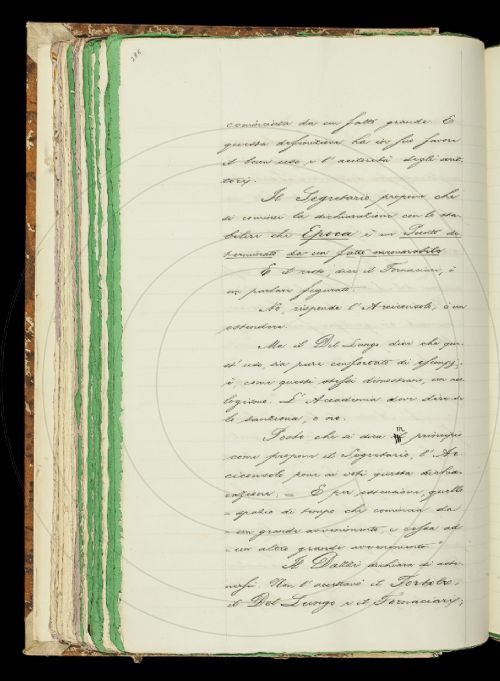 386
cominciata da un fatto grande. E
questa definizione ha in suo favore
il buon uso e l'autorità degli scrit-
tori.
Il Segretario propone che
si cominci la dichiarazione con lo sta-
bilire che Epoca è un Punto de
terminato da un fatto memorabile.
E il resto, dice il Fornaciari, è
un parlare figurato.
No, risponde l'Arciconsolo, è un
estendere.
Ma il Del Lungo dice che que-
st'uso, sia pure confortato di esempj,
è, come questi stessi dimostrano, un neo-
logismo. L'Accademia deve dire se
lo sanziona, o no.
Posto che si dica in principio
come propone il Segretario, l'Ar-
ciconsolo pone ai voti questa dichia-
razione: = E per estensione, quello
= spazio di tempo che comincia da
= un grande avvenimento, e cessa ad
= un altro grande avvenimento.
Il Dalzi dichiara di aste-
nersi. Non l'accettano il Tortoli,
il Del Lungo e il Fornaciari;